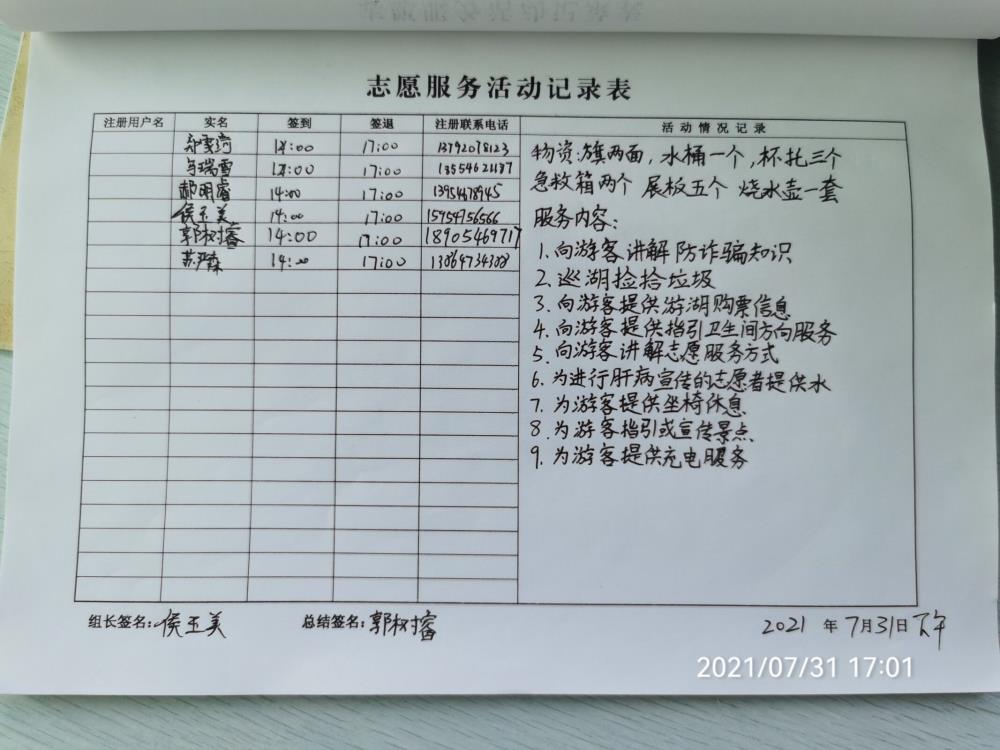 志愿服务活动记录表
注册用户名 实名 签到 签退 注册联系电话 活动情况记录
14:00 17:00 13792078123
马瑞雪 14:00 17:00 18554621187
郝明睿 14:00 17:00 13954678945
侯玉美 14:00 17:00 15954756566
郭树睿 14:00 17:00 18905469717
苏严森 14:00 17:00 13864734308
物资:旗两面,水桶一个,杯托三个
急救箱两个 展板五个 烧水壶一套
服务内容:
1.向游客讲解防诈骗知识
2.巡湖捡拾垃圾
3.向游客提供游湖购票信息
4.向游客提供指引卫生间方向服务
5.向游客讲解志愿服务方式
6.为进行肝病宣传的志愿者提供水
7.为游客提供坐椅休息
8.为游客指引或宣传景点
9.为游客提供充电服务
组长签名:侯玉美 总结签名:郭树睿 2021年7月31日下午
2021/07/31 17:01